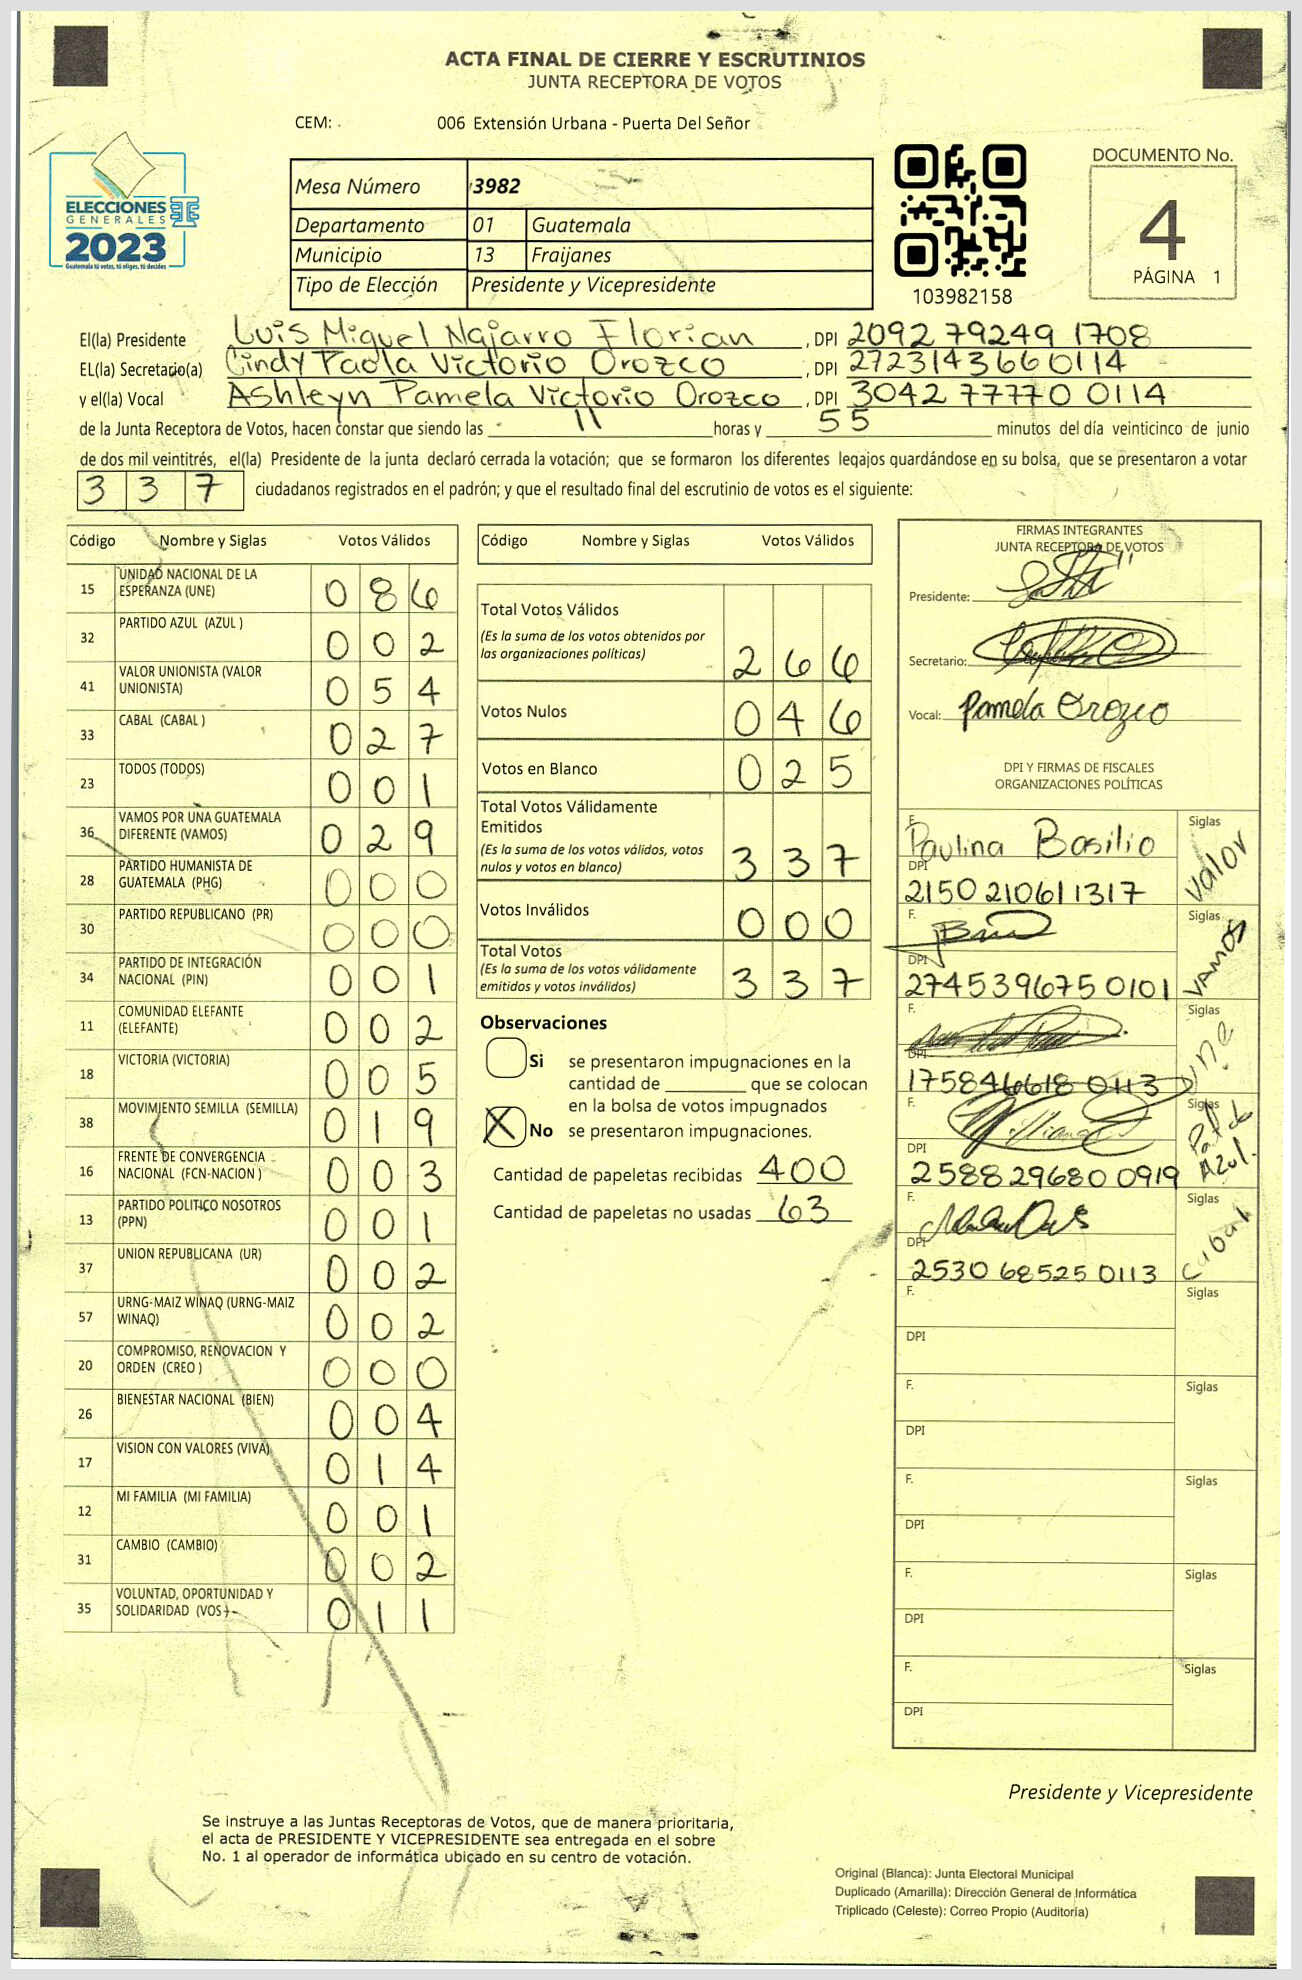 ACTA FINAL DE CIERRE Y ESCRUTINIOS
JUNTA RECEPTORA DE VOTOS
CEM: 006 Extensión Urbana - Puerta Del Señor
ELECCIONES
GENERALES
2023
Guatemala tú votes, tú eliges, tú decides
Mesa Número 3982
Departamento 01 Guatemala
Municipio 13 Fraijanes
Tipo de Elección Presidente y Vicepresidente
103982158
DOCUMENTO No.
4
PÁGINA 1
El(la) Presidente Luis Miguel Najarro Florian, DPI 2092 79249 1708
EL(la) Secretario(a) Cindy Paola Victorio Orozco, DPI 2723143660114
y el(la) Vocal Ashleyn Pamela Victorio Orozco, DPI 3042 77770 0114
de la Junta Receptora de Votos, hacen constar que siendo las 11 horas y 55 minutos del día veinticinco de junio
de dos mil veintitrés, el(la) Presidente de la junta declaró cerrada la votación; que se formaron los diferentes legajos guardándose en su bolsa, que se presentaron a votar
337 ciudadanos registrados en el padrón; y que el resultado final del escrutinio de votos es el siguiente:
Código Nombre y Siglas Votos Válidos
15 UNIDAD NACIONAL DE LA
ESPERANZA (UNE) 086
32 PARTIDO AZUL (AZUL ) 002
41 VALOR UNIONISTA (VALOR
UNIONISTA) 054
33 CABAL (CABAL ) 027
23 TODOS (TODOS) 001
36 VAMOS POR UNA GUATEMALA
DIFERENTE (VAMOS) 029
28 PARTIDO HUMANISTA DE
GUATEMALA (PHG) 000
30 PARTIDO REPUBLICANO (PR) 000
34 PARTIDO DE INTEGRACIÓN
NACIONAL (PIN) 001
11 COMUNIDAD ELEFANTE
(ELEFANTE) 002
18 VICTORIA (VICTORIA) 005
38 MOVIMIENTO SEMILLA (SEMILLA) 019
16 FRENTE DE CONVERGENCIA
NACIONAL (FCN-NACION ) 003
13 PARTIDO POLITICO NOSOTROS
(PPN) 001
37 UNION REPUBLICANA (UR) 002
57 URNG-MAIZ WINAQ (URNG-MAIZ
WINAQ) 002
20 COMPROMISO, RENOVACION Y
ORDEN (CREO ) 000
26 BIENESTAR NACIONAL (BIEN) 004
17 VISION CON VALORES (VIVA) 014
12 MI FAMILIA (MI FAMILIA) 001
31 CAMBIO (CAMBIO) 002
35 VOLUNTAD, OPORTUNIDAD Y
SOLIDARIDAD (VOS ) 011
Código Nombre y Siglas Votos Válidos
Total Votos Válidos
(Es la suma de los votos obtenidos por
las organizaciones políticas) 266
Votos Nulos 046
Votos en Blanco 025
Total Votos Válidamente
Emitidos
(Es la suma de los votos válidos, votos
nulos y votos en blanco) 337
Votos Inválidos 000
Total Votos
(Es la suma de los votos válidamente
emitidos y votos inválidos) 337
Observaciones
Si se presentaron impugnaciones en la
cantidad de ________ que se colocan
en la bolsa de votos impugnados
X No se presentaron impugnaciones.
Cantidad de papeletas recibidas 400
Cantidad de papeletas no usadas 63
FIRMAS INTEGRANTES
JUNTA RECEPTORA DE VOTOS
Presidente:
Secretario:
Vocal: Pamela Orozco
DPI Y FIRMAS DE FISCALES
ORGANIZACIONES POLÍTICAS
F. Paulina Basilio Siglas Valor
DPI 2150 21061 1317
F. Siglas VAMOS
DPI 2745396750101
F. Siglas une
DPI 1758466180113
F. Siglas Azul.
DPI 2588 29680 0919
F. Siglas Cabal
DPI 2530 68525 0113
F. Siglas
DPI
F. Siglas
DPI
F. Siglas
DPI
F. Siglas
DPI
F. Siglas
DPI
Presidente y Vicepresidente
Se instruye a las Juntas Receptoras de Votos, que de manera prioritaria,
el acta de PRESIDENTE Y VICEPRESIDENTE sea entregada en el sobre
No. 1 al operador de informática ubicado en su centro de votación.
Original (Blanca): Junta Electoral Municipal
Duplicado (Amarilla): Dirección General de Informática
Triplicado (Celeste): Correo Propio (Auditoría)